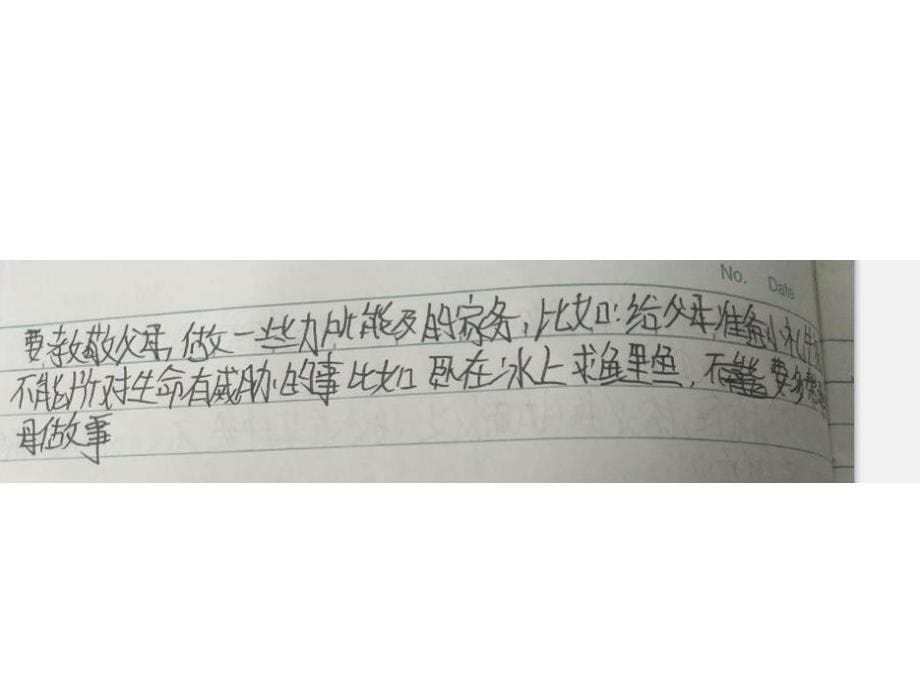 No. Date
要孝敬父母,做一些力所能及的家务,比如:给父母准备小礼
不能所对生命有威胁的事比如卧在冰上求鱼里鱼,不 要多
母做故事